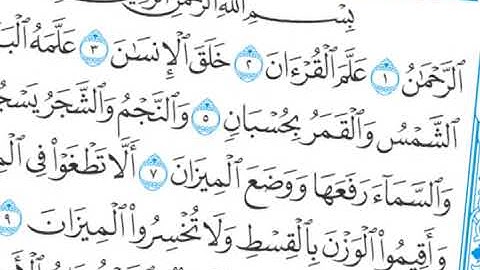 بِسْمِ ٱللَّهِ ٱلرَّحْمَٰنِ
ٱلرَّحْمَٰنُ ١ عَلَّمَ ٱلْقُرْءَانَ ٢ خَلَقَ ٱلْإِنسَٰنَ ٣ عَلَّمَهُ
ٱلشَّمْسُ وَٱلْقَمَرُ بِحُسْبَانٍ ٥ وَٱلنَّجْمُ وَٱلشَّجَرُ
وَٱلسَّمَآءَ رَفَعَهَا وَوَضَعَ ٱلْمِيزَانَ ٧ أَلَّا تَطْغَوْا۟ فِى
وَأَقِيمُوا۟ ٱلْوَزْنَ بِٱلْقِسْطِ وَلَا تُخْسِرُوا۟ ٱلْمِيزَانَ ٩